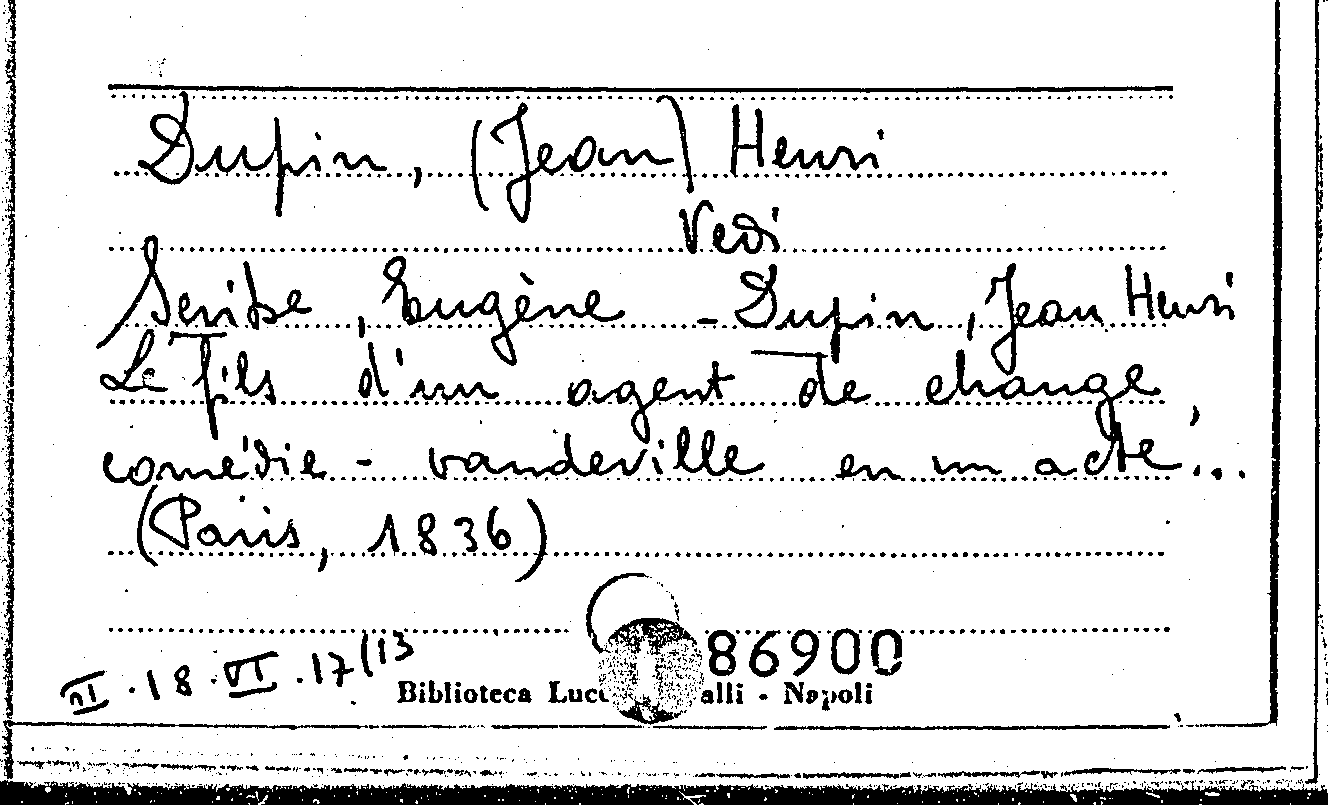 Dupin, (Jean) Henri
Vedi
Scribe, Eugène - Dupin, Jean Henri
Le fils d'un agent de change,
comédie - vaudeville en un acte...
(Paris, 1836)
86900
III.18.VI.17/13
Biblioteca Lucc alli - Napoli